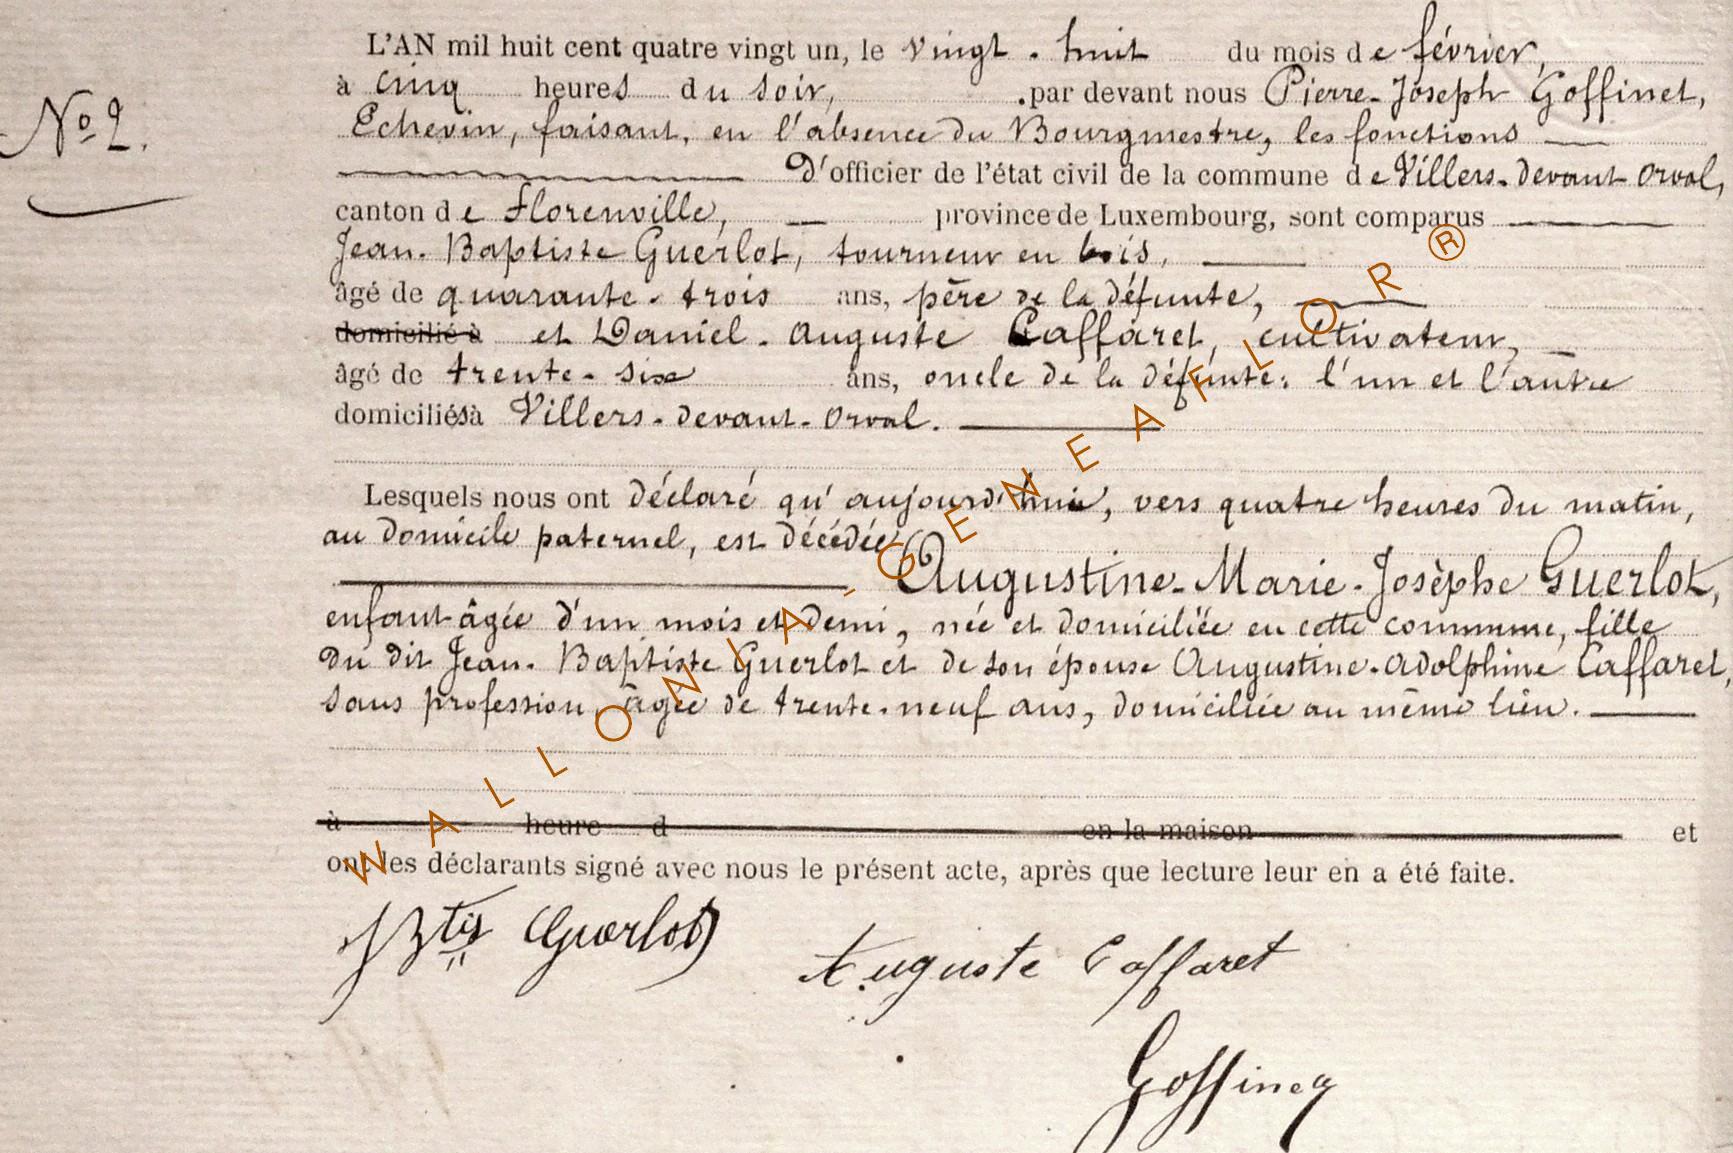 L'AN mil huit cent quatre vingt un, le vingt-huit du mois de février,
à cinq heures du soir, par devant nous Pierre-Joseph Goffinet,
N° 2.
Echevin, faisant, en l'absence du Bourgmestre, les fonctions
D'officier de l'état civil de la commune de Villers-devant-Orval,
canton de Florenville, province de Luxembourg, sont comparus
Jean-Baptiste Guerlot, tourneur en bois,
âgé de quarante-trois ans, père de la défunte,
domicilié à et Daniel-Auguste Caffaret, cultivateur,
âgé de trente-six ans, oncle de la défunte: l'un et l'autre
domiciliés à Villers-devant-Orval.
Lesquels nous ont déclaré qu'aujourd'hui, vers quatre heures du matin,
au domicile paternel, est décédée
Augustine-Marie-Josèphe Guerlot,
enfant âgée d'un mois et demi, née et domiciliée en cette commune, fille
du dit Jean-Baptiste Guerlot et de son épouse Augustine-Adolphine Caffaret,
sans profession, âgée de trente-neuf ans, domiciliée au même lieu.
à heure d en la maison et
ont les déclarants signé avec nous le présent acte, après que lecture leur en a été faite.
JBte Guerlot
Auguste Caffaret
Goffinet
WALLONIA-GENEAFLOR®